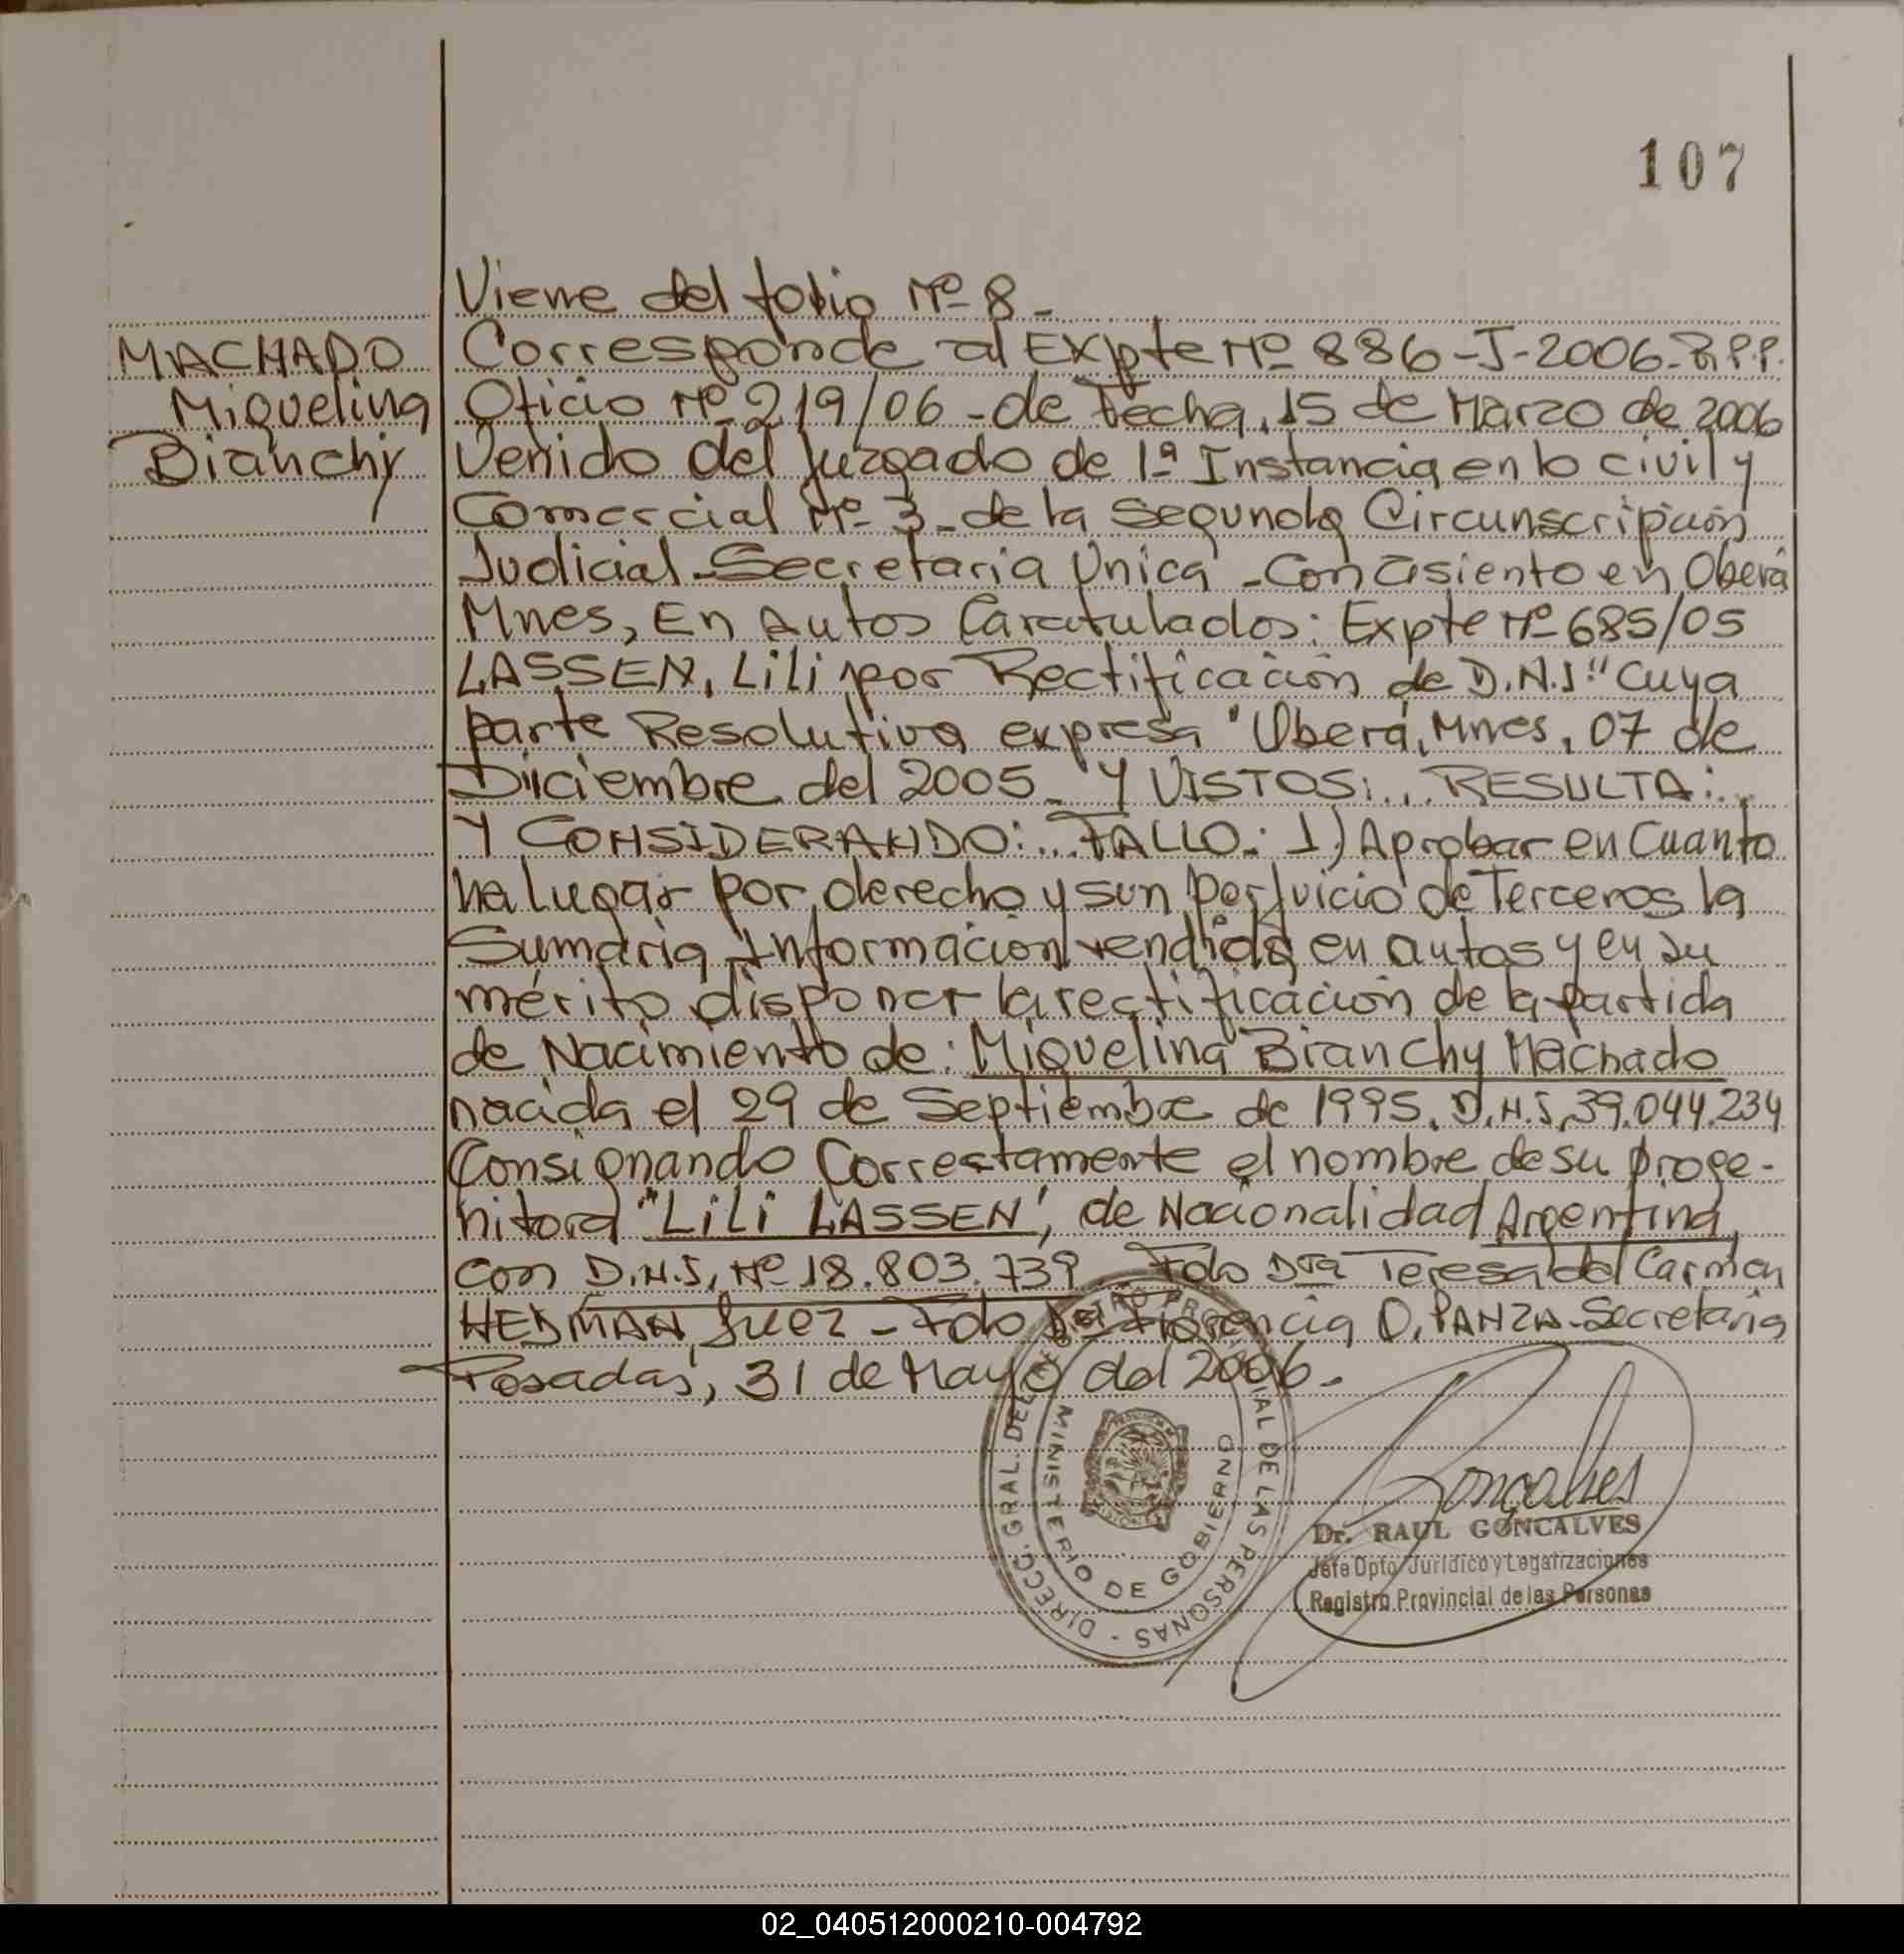 107
Viene del folio Nº 8 -
MACHADO
Miquelina
Bianchy
Corresponde al Expte Nº 886-J-2006-R.P.P.
Oficio Nº 219/06 - de Fecha, 15 de Marzo de 2006
Venido del Juzgado de 1ª Instancia en lo civil y
Comercial Nº 3 - de la Segunda Circunscripción
Judicial - Secretaria Unica - Con asiento en Oberá
Mnes, En autos Caratulados: Expte Nº 685/05
LASSEN, Lili por Rectificación de D.N.I" Cuya
parte Resolutiva expresa "Oberá, Mnes, 07 de
Diciembre del 2005 - Y VISTOS:... RESULTA:..
Y CONSIDERANDO:... FALLO: 1) Aprobar en Cuanto
ha lugar por derecho y sin perjuicio de Terceros la
Sumaria Información rendida en autos y en su
mérito disponer la rectificación de la partida
de Nacimiento de: Miquelina Bianchy Machado
nacida el 29 de Septiembre de 1995. D.N.I. 39.044.234
Consignando Correctamente el nombre de su proge-
nitora "Lili LASSEN", de Nacionalidad Argentina,
con D.N.I. Nº 18.803.739 - Fdo Dra Teresa del Carmen
HEDMAN, Juez - Fdo Dra Florencia O. PANZA - Secretaria
Posadas, 31 de Mayo del 2006.
DIRECC. GRAL. DEL REGISTRO PROVINCIAL DE LAS PERSONAS -
MINISTERIO DE GOBIERNO
Goncalves
Dr. RAUL GONCALVES
Jefe Dpto. Jurídico y Legalizaciones
Registro Provincial de las Personas
02_040512000210-004792